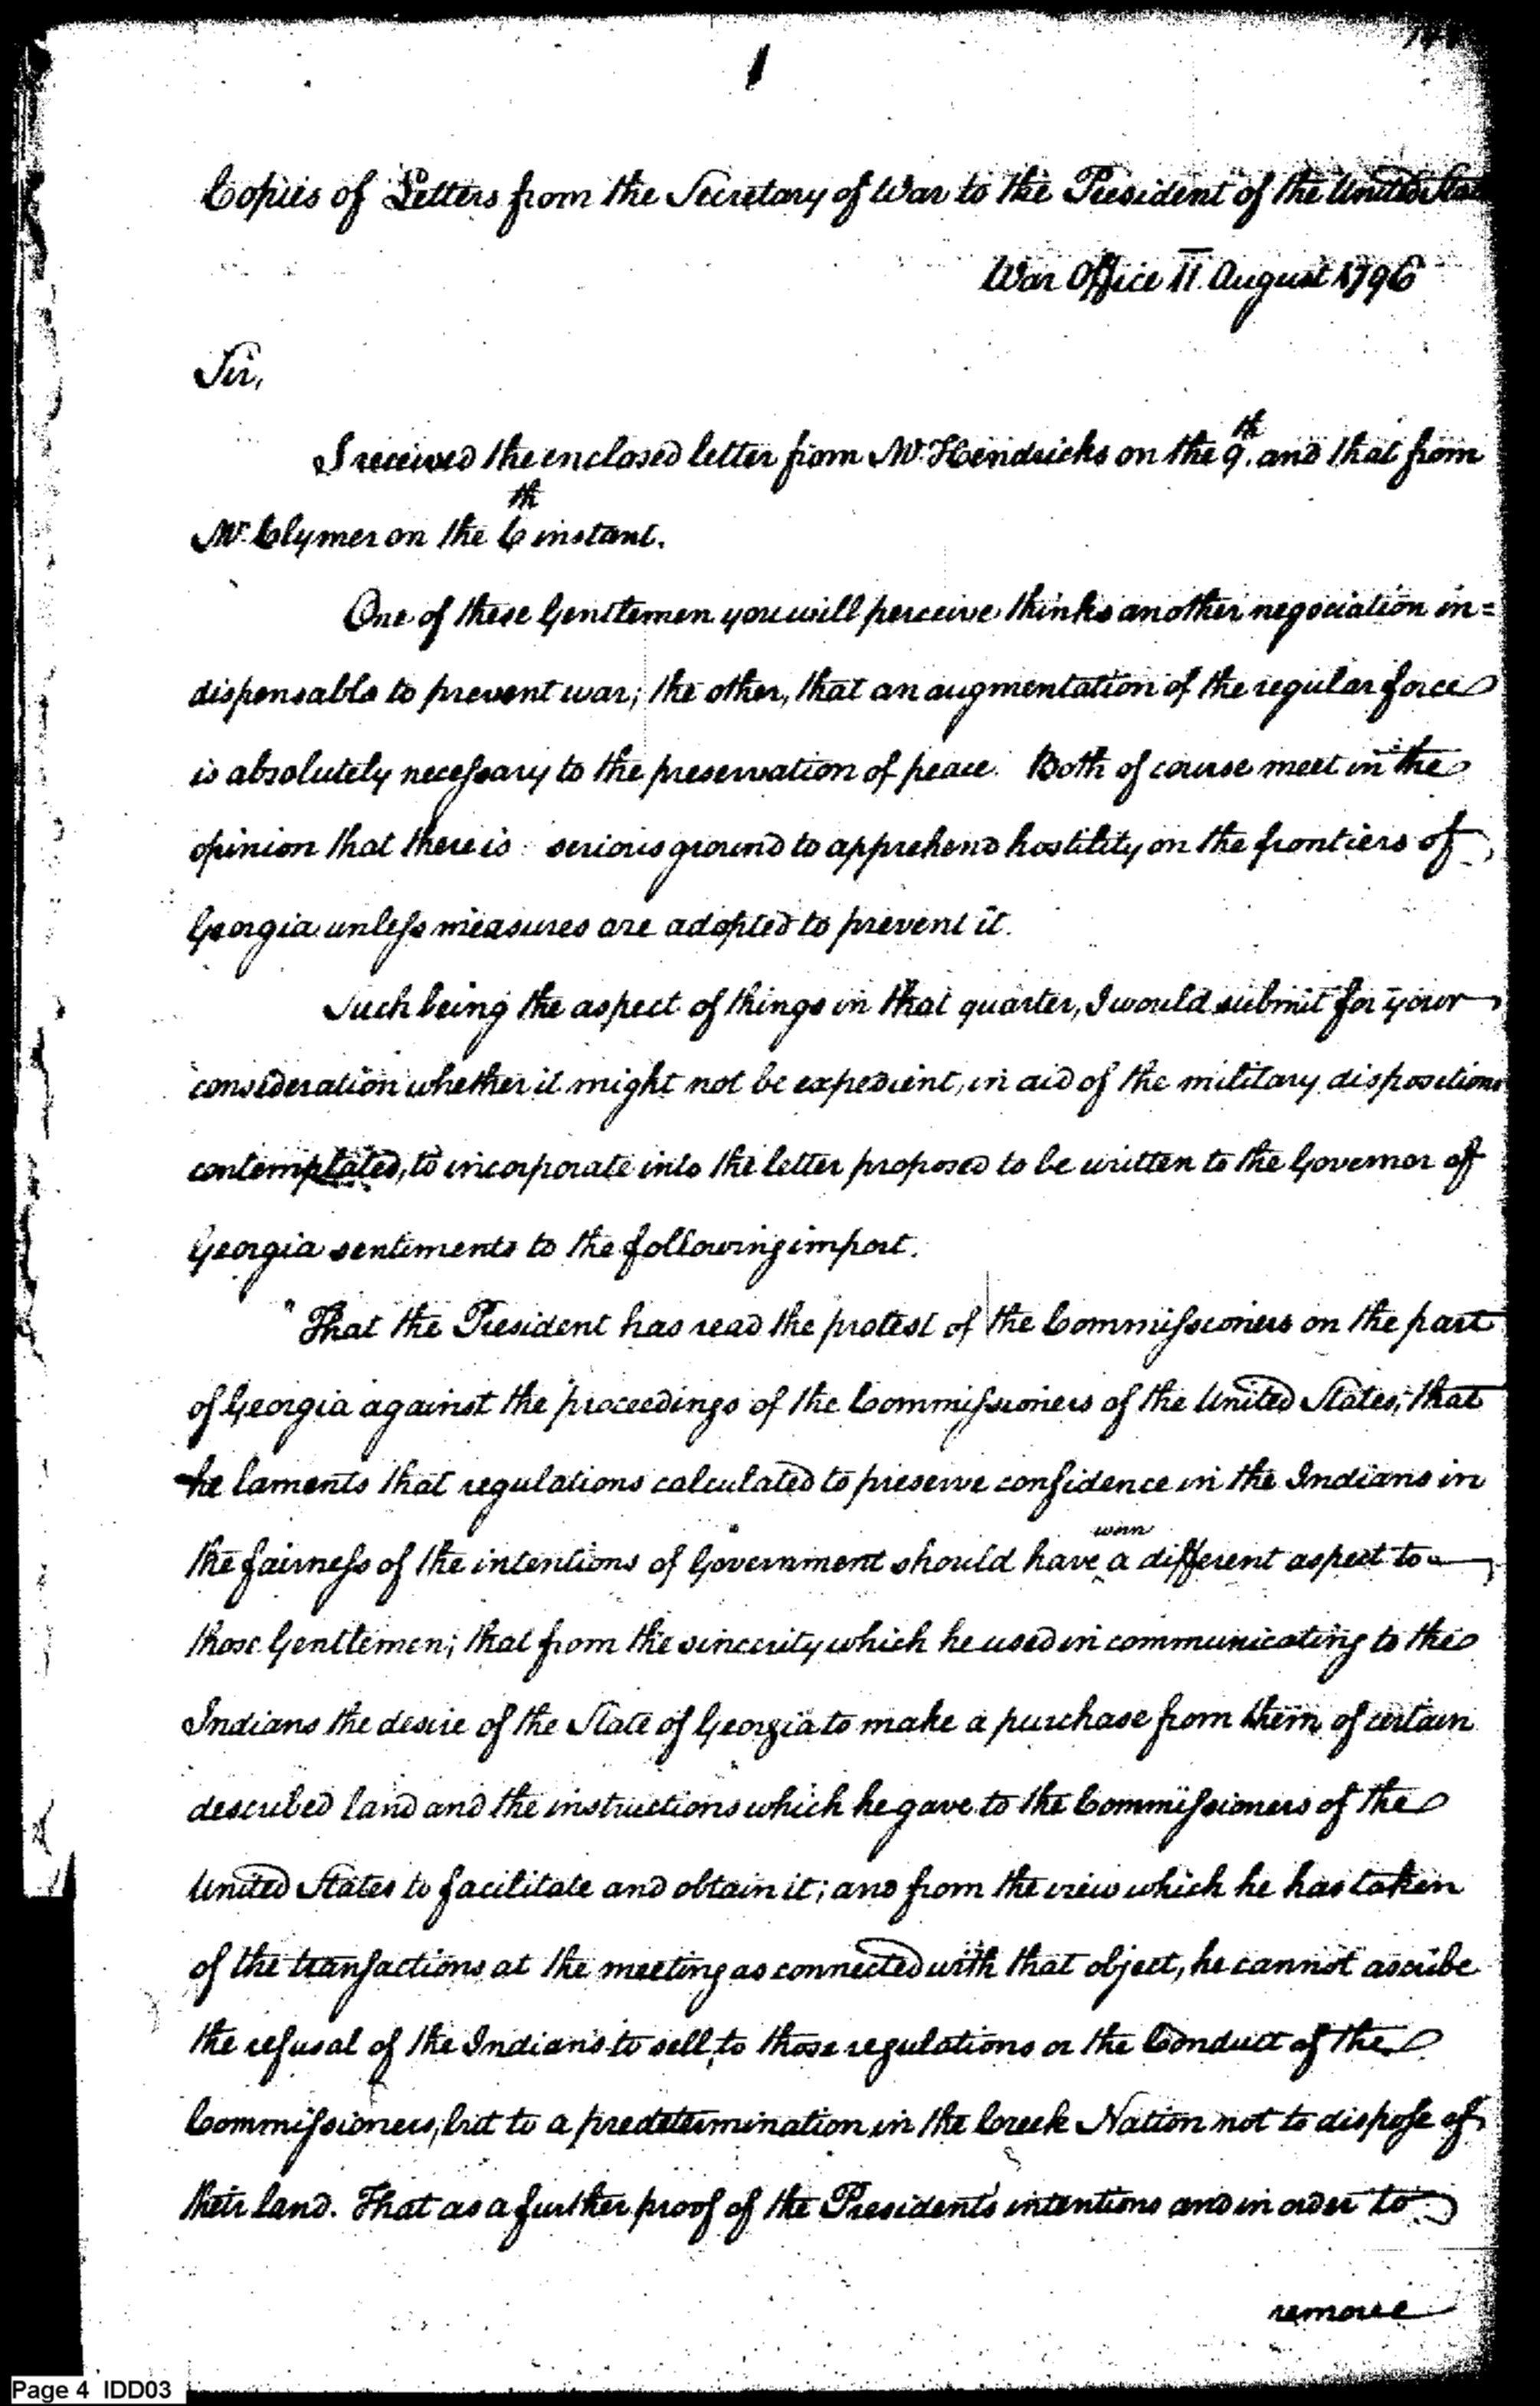 1
Copies of Letters from the Secretary of War to the President of the United
War Office 11. August 1796
Sir,
I received the enclosed letter from Mr. Hendricks on the 9th. and that from
Mr. Clymer on the 6th instant.
One of these Gentlemen you will perceive thinks another negociation in=
dispensable to prevent war; the other, that an augmentation of the regular force
is absolutely necessary to the preservation of peace. Both of course meet in the
opinion that there is serious ground to apprehend hostility on the frontiers of
Georgia unless measures are adopted to prevent it.
Such being the aspect of things in that quarter, I would submit for your
consideration whether it might not be expedient, in aid of the military dispositions
contemplated, to incorporate into the letter proposed to be written to the Governor of
Georgia sentiments to the following import.
"That the President has read the protest of the Commissioners on the part
of Georgia against the proceedings of the Commissioners of the United States; that
he laments that regulations calculated to preserve confidence in the Indians in
the fairness of the intentions of Government should have worn a different aspect to
those Gentlemen; that from the sincerity which he used in communicating to the
Indians the desire of the State of Georgia to make a purchase from them of certain
described land and the instructions which he gave to the Commissioners of the
United States to facilitate and obtain it; and from the view which he has taken
of the transactions at the meeting as connected with that object, he cannot ascribe
the refusal of the Indians to sell, to those regulations or the Conduct of the
Commissioners, but to a predetermination in the Creek Nation not to dispose of
their land. That as a further proof of the Presidents intentions and in order to
remove
Page 4 IDD03